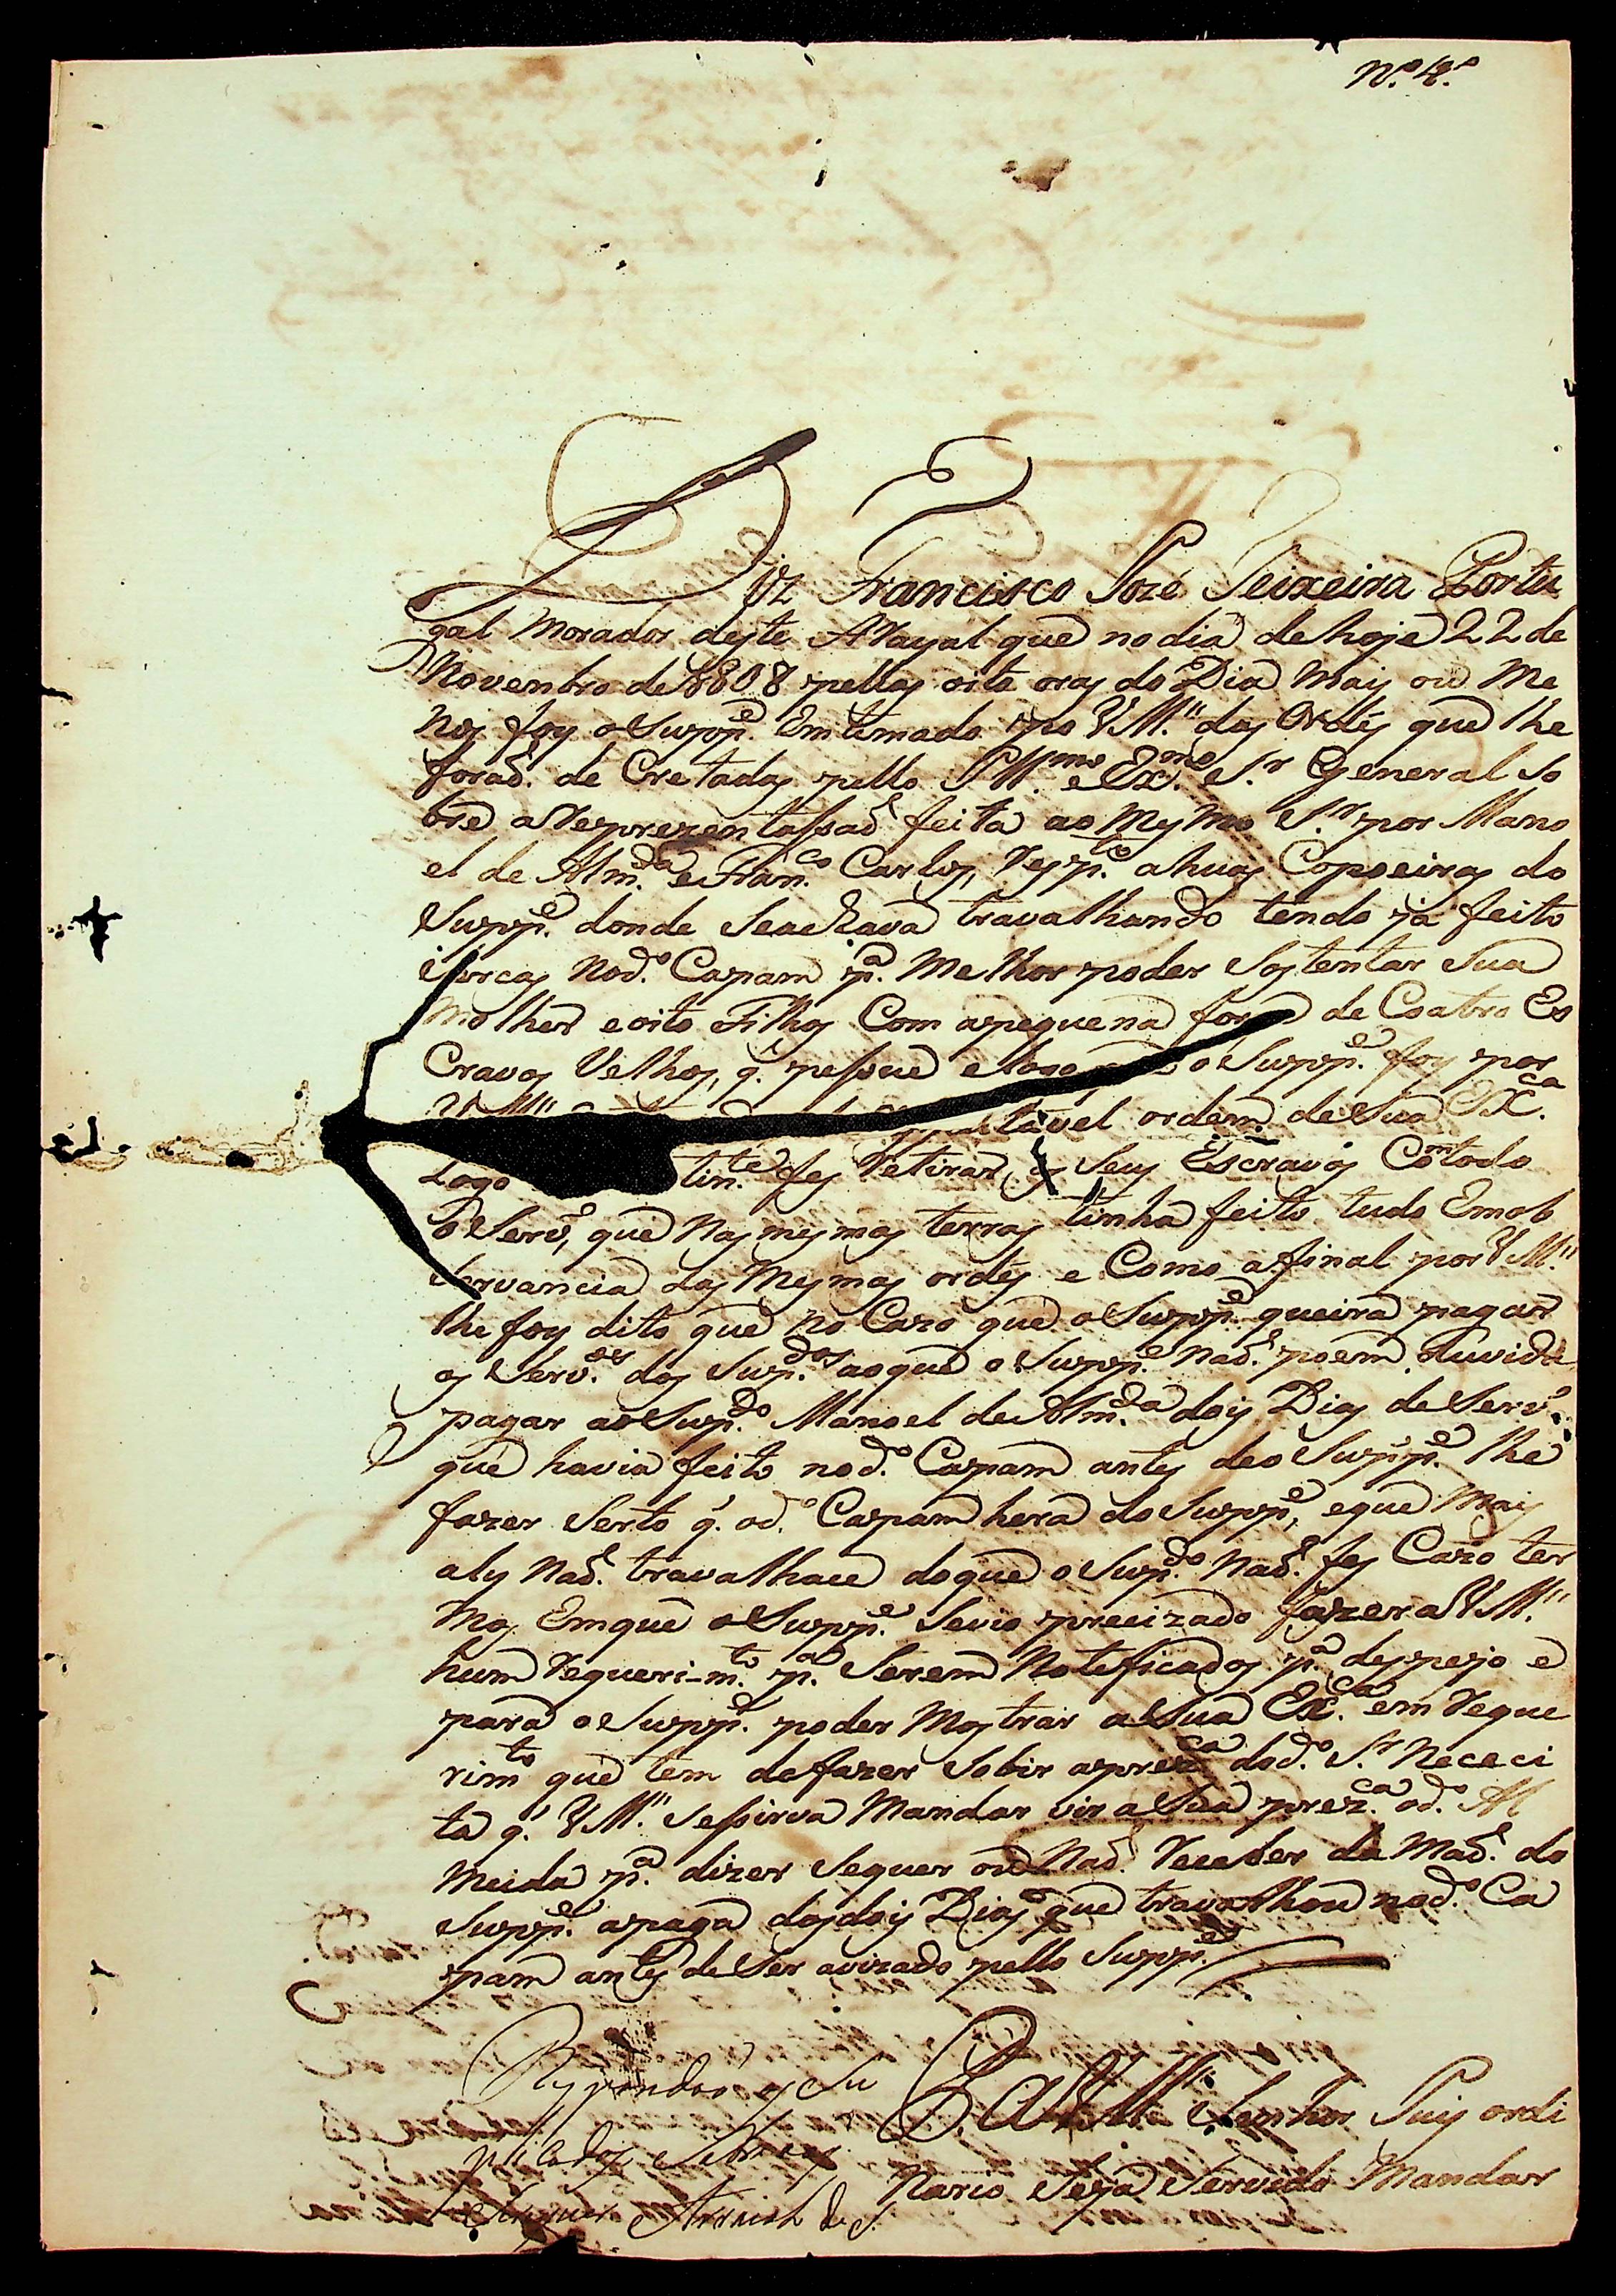 N.º 4.º
Diz Francisco Jozé Teixeira Portu
gal Morador deste ARayal que no dia de hoje 22 de
Novembro de 1808 pellas oito oras do Dia Mais ou Me
nos foy o Supp.e Emtimado por VM.ce das Ordés que lhe
foraõ de Cretadas pello Ill.mo e Ex.mo S.r General So
bre a Reprezentassaõ feita ao Mesmo S.r por Mano
el de Alm.da e Fran.co Carlos, Resp.to a huas Capoeiras do
Supp.e donde Se achava travalhando tendo ja feito
no d.º Capam p.a Melhor poder Sostentar Sua
Molher e oito Filhos Com a pequena força de Coatro Es
Cravos Velhos, q. pessue e logo o Supp.e foy por
VM.ce tavel ordem de Sua Ex.ca
Logo tin.te fes Retirar os Seus Escravos Com todo
o Serv.º, que Nas mesmas terras tinha feito tudo Em ob
Servancia das Mesmas ordés e Como a final por VM.ce
lhe foy dito que no Cazo que o Supp.e queira pagar
os Serv.os dos Sup.dos ao que o Supp.e Naõ poem duvida
pagar ao Sup.do Manoel de Alm.da dois Dias de Serv.º
que havia feito no d.º Capam antes de o Supp.e lhe
fazer Serto q. o d.º Capam hera do Supp.e, e que Mais
aly Naõ travalhace do que o Sup.do Naõ fes Cazo ter
mos Em que o Supp.e Se vio precizado fazer a VM.ce
hum Requeri-m.to p.a Serem Noteficados p.a despejo e
para o Supp.e poder Mostrar a Sua Ex.ca em Reque
rim.to que tem de fazer Sobir a prez.ca do d.º S.r Nececi
ta q. VM.ce Se sirva Mandar vir a Sua prez.ca o d.º Al
meida p.a dizer Se quer ou Naõ Receber da Maõ do
Supp.e a paga dos dois Dias que travalhou no d.º Ca
pam antes de Ser avizado pello Supp.e
P. a VM.ce Senhor Juis ordi
nario Seja Servido Mandar
Respondaõ os Su
plicados